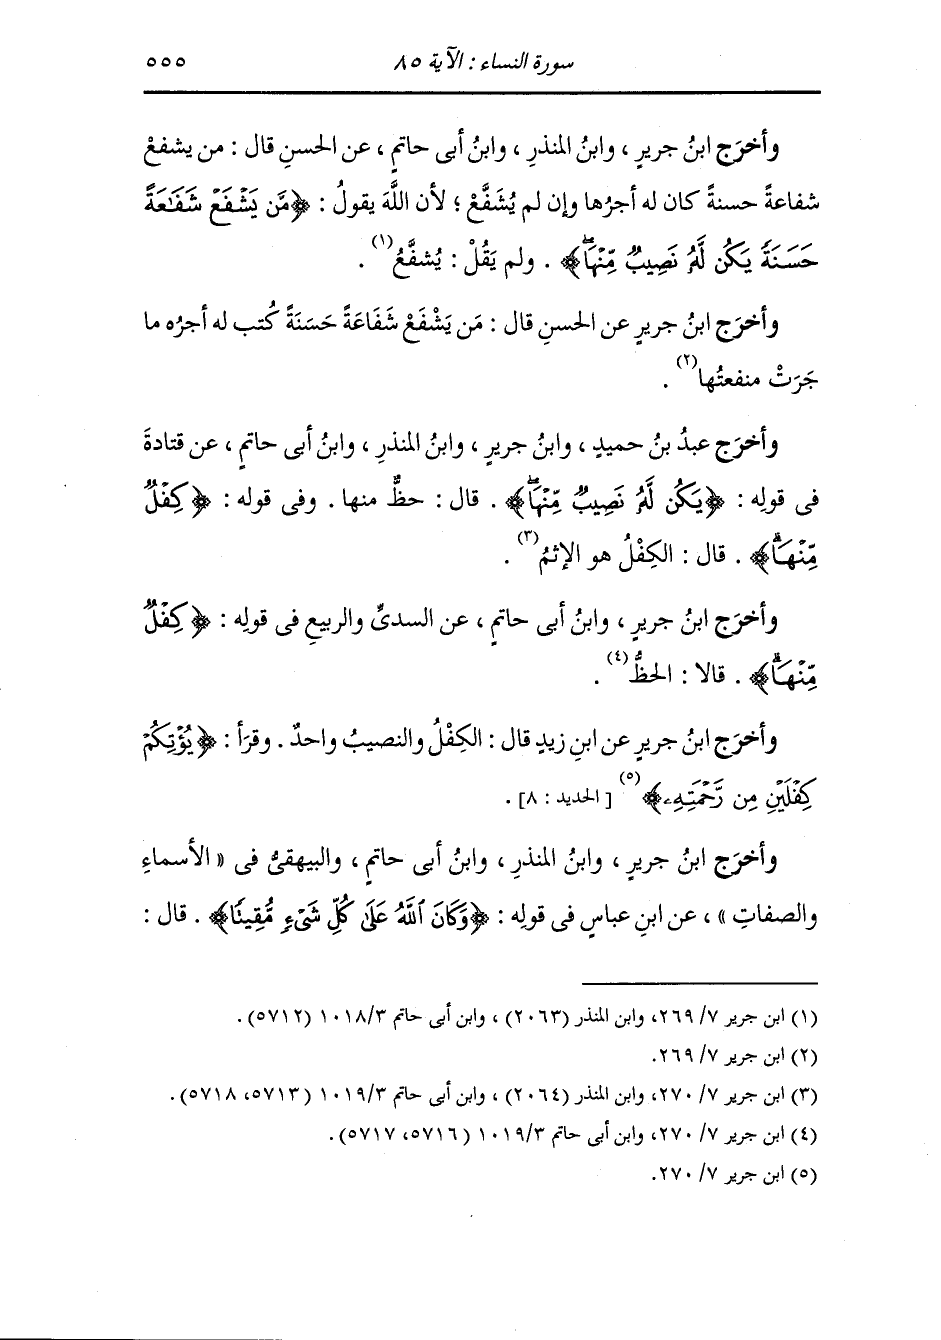 سورة النساء : الآية ٨٥ ٥٥٥
وأخرَج ابنُ جريرٍ ، وابنُ المنذرِ ، وابنُ أبى حاتمٍ ، عن الحسنِ قال : من يشفعْ
شفاعةً حسنةً كان له أجرُها وإن لم يُشَفَّعْ ؛ لأن اللَّهَ يقولُ : ﴿مَّن يَشْفَعْ شَفَٰعَةً
حَسَنَةً يَكُن لَّهُۥ نَصِيبٌ مِّنْهَاۖ﴾ . ولم يَقُلْ : يُشفَّعُ(١) .
وأخرَج ابنُ جريرٍ عن الحسنِ قال : مَن يَشْفَعْ شَفَاعَةً حَسَنَةً كُتب له أجرُه ما
جَرَتْ منفعتُها(٢) .
وأخرَج عبدُ بنُ حميدٍ ، وابنُ جريرٍ ، وابنُ المنذرِ ، وابنُ أبى حاتمٍ ، عن قتادةَ
فى قولِه : ﴿يَكُن لَّهُۥ نَصِيبٌ مِّنْهَاۖ﴾ . قال : حظٌّ منها . وفى قوله : ﴿كِفْلٌ
مِّنْهَاۗ﴾ . قال : الكِفْلُ هو الإثمُ(٣) .
وأخرَج ابنُ جريرٍ ، وابنُ أبى حاتمٍ ، عن السدىِّ والربيعِ فى قولِه : ﴿كِفْلٌ
مِّنْهَاۗ﴾ . قالا : الحظُّ(٤) .
وأخرَج ابنُ جريرٍ عن ابنِ زيدٍ قال : الكِفْلُ والنصيبُ واحدٌ . وقرَأ : ﴿يُؤْتِكُمْ
كِفْلَيْنِ مِن رَّحْمَتِهِۦ﴾(٥) [ الحديد : ٨] .
وأخرَج ابنُ جريرٍ ، وابنُ المنذرِ ، وابنُ أبى حاتمٍ ، والبيهقىُّ فى « الأسماءِ
والصفاتِ » ، عن ابنِ عباسٍ فى قولِه : ﴿وَكَانَ ٱللَّهُ عَلَىٰ كُلِّ شَىْءٍ مُّقِيتًا﴾ . قال :
(١) ابن جرير ٧/ ٢٦٩، وابن المنذر (٢٠٦٣) ، وابن أبى حاتم ١٠١٨/٣ (٥٧١٢).
(٢) ابن جرير ٧/ ٢٦٩.
(٣) ابن جرير ٧/ ٢٧٠، وابن المنذر (٢٠٦٤) ، وابن أبى حاتم ١٠١٩/٣ (٥٧١٣، ٥٧١٨).
(٤) ابن جرير ٧/ ٢٧٠، وابن أبى حاتم ١٠١٩/٣ (٥٧١٦، ٥٧١٧).
(٥) ابن جرير ٧/ ٢٧٠.